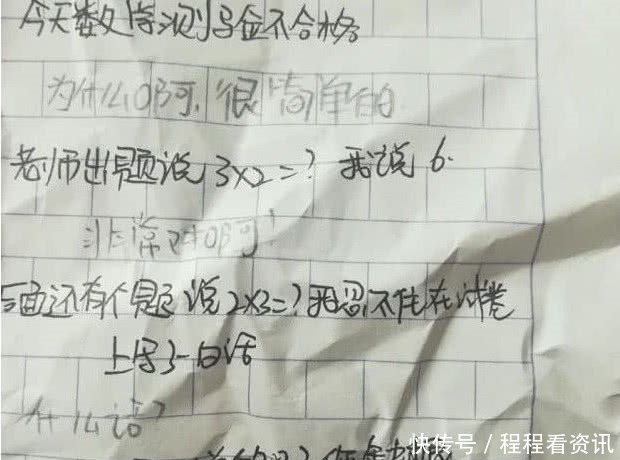 今天数学测马金不合格
为什么啊，很简单的
老师出题说 3×2=? 我说 6.
非常对啊!
后面还有个题说 2×3=? 我忍不住在试卷
上写了一句话
什么话?
快传号 / 程程看资讯